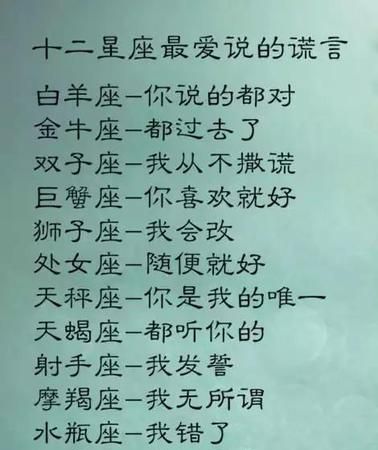 十二星座最爱说的谎言
白羊座-你说的都对
金牛座-都过去了
双子座-我从不撒谎
巨蟹座-你喜欢就好
狮子座-我会改
处女座-随便就好
天秤座-你是我的唯一
天蝎座-都听你的
射手座-我发誓
摩羯座-我无所谓
水瓶座-我错了